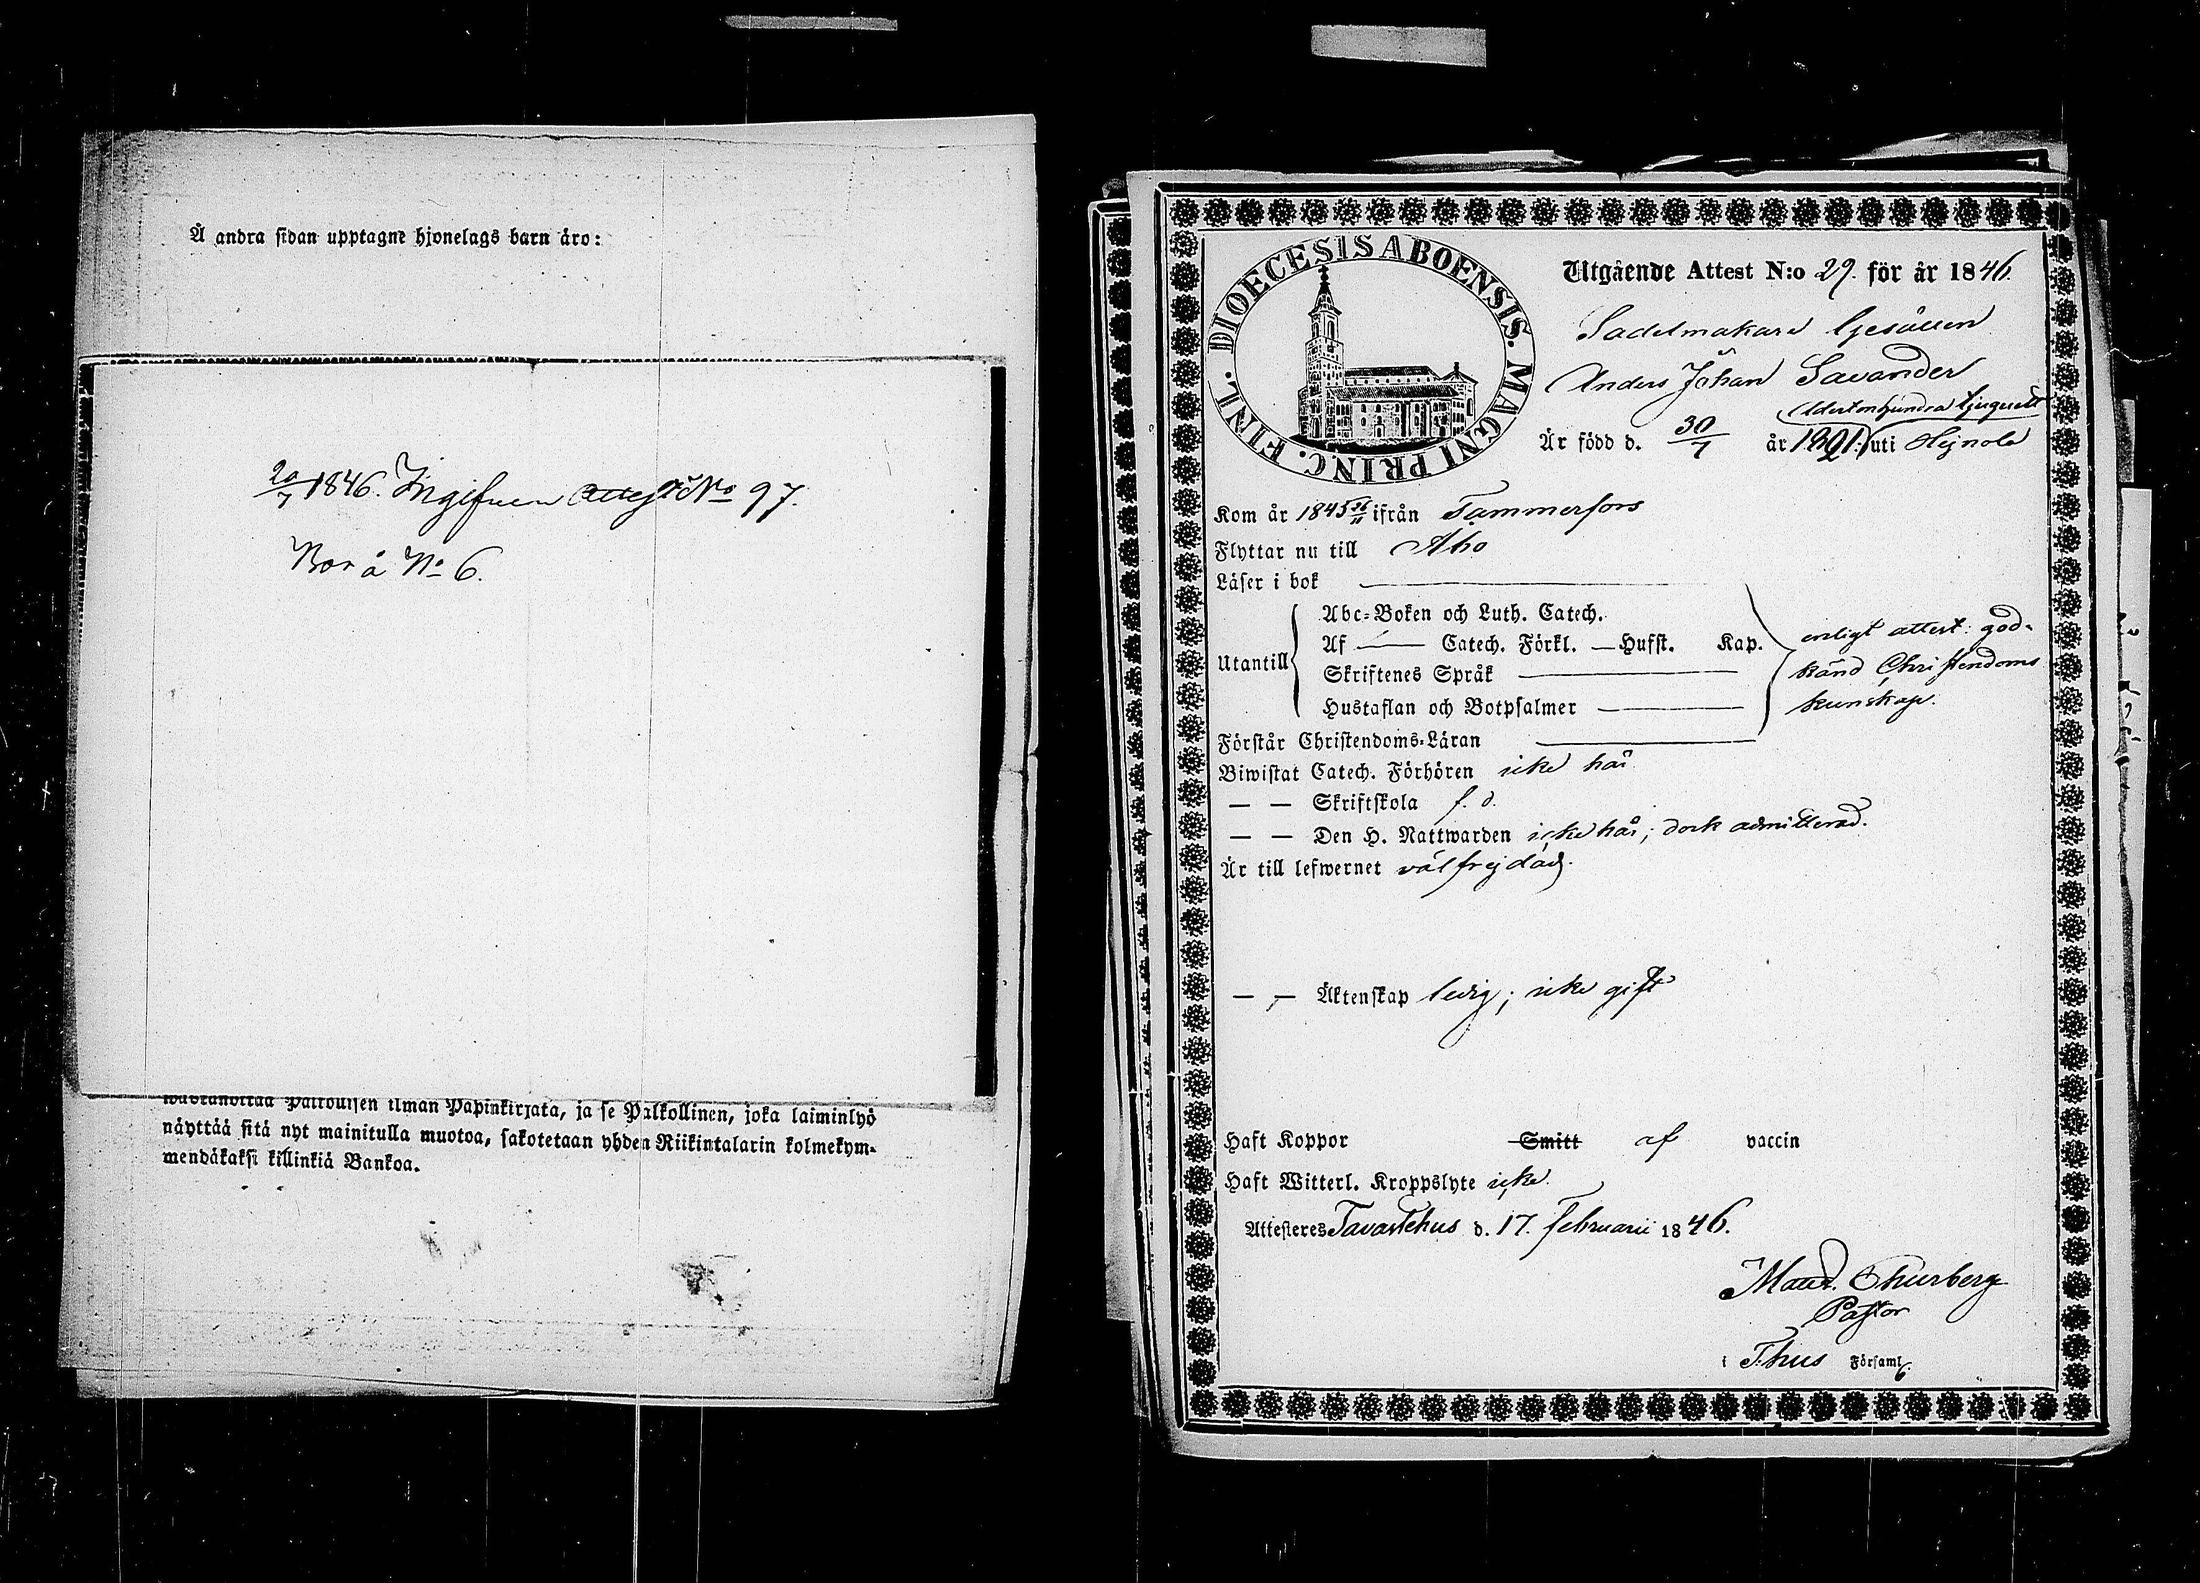 Å andra sidan upptagne hjonelags barn äro:
20/7 1846. Ingifven Attest No 97.
Borå No 6.
Palkollisen ilman Papinkirjata, ja se Palkollinen, joka laiminlyö
näyttää sitä nyt mainitulla muotoa, sakotetaan yhden Riikintalarin kolmekym-
mendäkaksi killinkiä Bankoa.
DIOECESIS ABOENSIS. MAGNI PRINC. FINL.
Utgående Attest N:o 29. för år 1846.
Sadelmakare Gesällen
Anders Johan Savander
Adertonhundra tjuguett
Är född d. 30/7 år 1821. uti Hejnola
Kom år 1845 26/11 ifrån Tammerfors
Flyttar nu till Åbo
Läser i bok
Abc-Boken och Luth. Catech.
Utantill Af — Catech. Förkl. — Hufst. Kap. enligt attest: god-
Skriftenes Språk — känd Christendoms
Hustaflan och Botpsalmer — kunskap.
Förstår Christendoms-Läran
Biwistat Catech. Förhören icke här
— — Skriftskola f. d.
— — Den H. Nattwarden icke här; dock admitterad.
Är till lefwernet välfrejdad.
— „ — Äktenskap ledig; icke gift
Haft Koppor Smitt af vaccin
Haft Witterl. Kroppslyte icke.
Attesteres Tavastehus d. 17. Februarii 1846.
Maur. Thurberg
Pastor
i T:hus Församl.